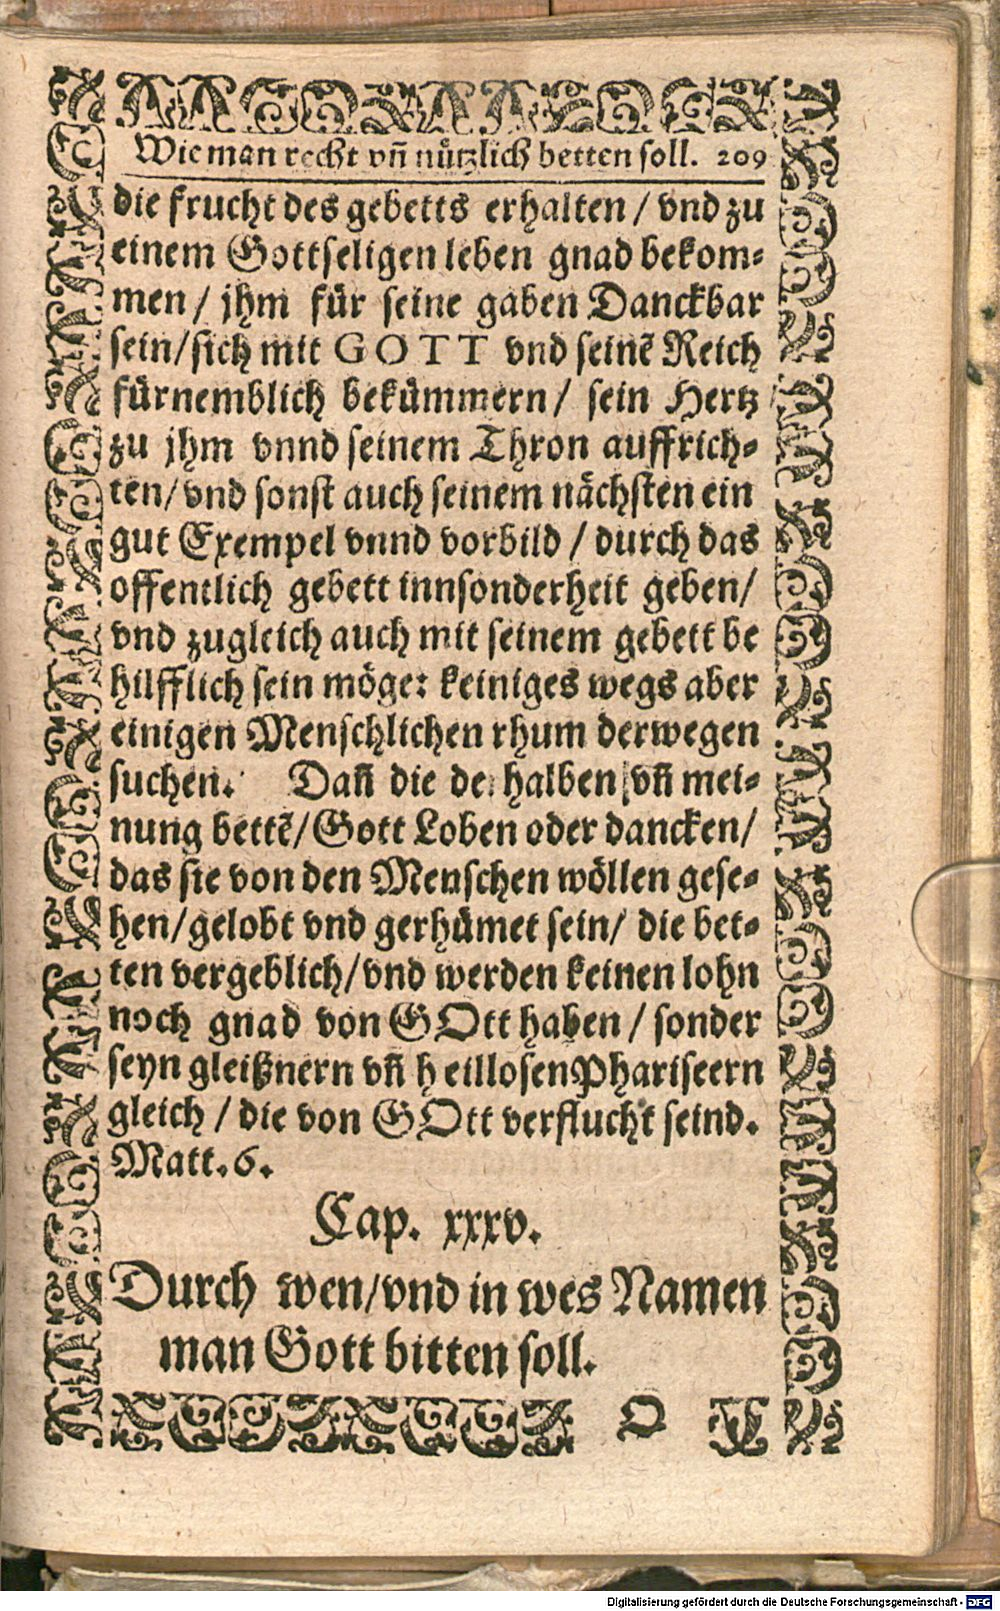 Wie man recht vñ nützlich betten soll. 209
die frucht des gebetts erhalten / vnd zu
einem Gottseligen leben gnad bekom-
men / jhm für seine gaben Danckbar
sein/sich mit GOTT vnd seinẽ Reich
fürnemblich bekümmern/ sein Hertz
zu jhm vnnd seinem Thron auffrich-
ten/vnd sonst auch seinem nächsten ein
gut Exempel vnnd vorbild / durch das
offentlich gebett innsonderheit geben/
vnd zugleich auch mit seinem gebett be
hilfflich sein möge: keiniges wegs aber
einigen Menschlichen rhum derwegen
suchen. Dañ die de halben vñ mei-
nung bettẽ/Gott Loben oder dancken/
das sie von den Menschen wöllen gese-
hen/gelobt vnd gerhümet sein/ die bet-
ten vergeblich/vnd werden keinen lohn
noch gnad von GOtt haben / sonder
seyn gleißnern vñ heillosen Phariseern
gleich / die von GOtt verflucht seind.
Matt. 6.
Cap. xxxv.
Durch wen/vnd in wes Namen
man Gott bitten soll.
O
Digitalisierung gefördert durch die Deutsche Forschungsgemeinschaft - DFG